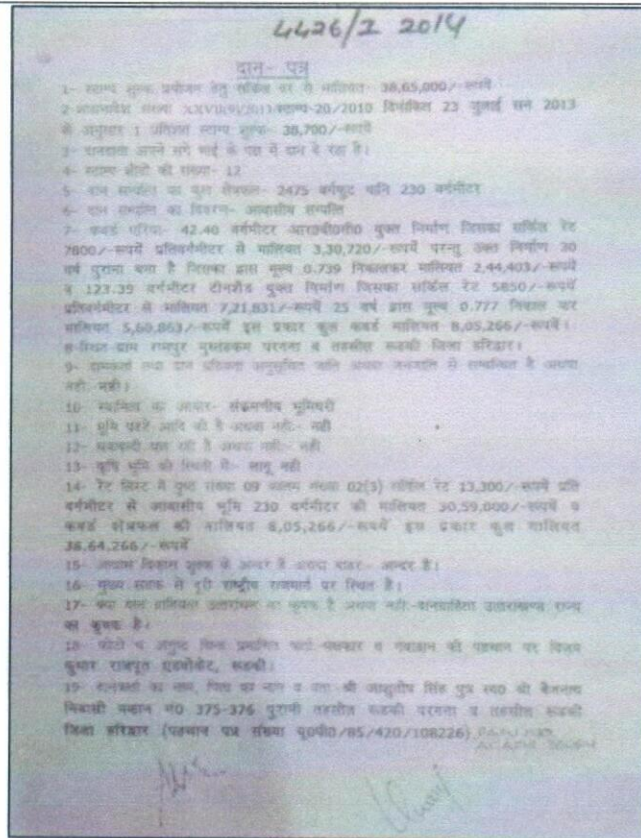 4426/I 2014
दान- पत्र
1- स्टाम्प शुल्क प्रयोजन हेतु सर्किल दर से मालियत- 38,65,000/-रूपये
2-शासनादेश संख्या /स्टाम्प-20/2010 दिनांकित 23 जुलाई सन 2013
के अनुसार 1 प्रतिशत स्टाम्प शुल्क- 38,700/-रूपये
3- दानदाता अपने सगे भाई के पक्ष में दान दे रहा है।
4- स्टाम्प सीटों की संख्या- 12
5- दान सम्पत्ति का कुल क्षेत्रफल- 2475 वर्गफुट यानि 230 वर्गमीटर
6- दान सम्पत्ति का विवरण- आवासीय सम्पत्ति
7- कवर्ड एरिया- 42.40 वर्गमीटर आर0बी0सी0 युक्त निर्माण जिसका सर्किल रेट
7800/-रूपये प्रतिवर्गमीटर से मालियत 3,30,720/-रूपये परन्तु उक्त निर्माण 30
वर्ष पुराना बना है जिसका ह्रास मूल्य 0.739 निकालकर मालियत 2,44,403/-रूपये
व 123.39 वर्गमीटर टीनशैड युक्त निर्माण जिसका सर्किल रेट 5850/-रूपये
प्रतिवर्गमीटर से मालियत 7,21,831/-रूपये 25 वर्ष ह्रास मूल्य 0.777 निकाल कर
मालियत 5,60,863/-रूपये इस प्रकार कुल कवर्ड मालियत 8,05,266/-रूपये।
8-स्थित ग्राम रामपुर मुस्तहकम परगना व तहसील रूडकी जिला हरिद्वार।
9- दानकर्ता तथा दान प्रतिग्रहीता अनुसूचित जाति अथवा जनजाति से सम्बन्धित है अथवा
नही- नही।
10- स्वामित्व का आधार- संक्रमणीय भूमिधरी
11- भूमि पट्टे आदि की है अथवा नही:- नही
12- चकबन्दी चल रही है अथवा नही:- नही
13- कृषि भूमि की स्थिती में:- लागू नही
14- रेट लिस्ट में पृष्ठ संख्या 09 कालम संख्या 02(5) सर्किल रेट 13,300/-रूपये प्रति
वर्गमीटर से आवासीय भूमि 230 वर्गमीटर की मालियत 30,59,000/-रूपये व
कवर्ड क्षेत्रफल की मालियत 8,05,266/-रूपये इस प्रकार कुल मालियत
38,64,266/-रूपये
15- आवास विकास शुल्क के अन्दर है अथवा बाहर:- अन्दर है।
16- मुख्य सडक से दूरी राष्ट्रीय राजमार्ग पर स्थित है।
17- क्या दान ग्रहिता उत्तरांचल का कृषक है अथवा नही:-दानग्रहिता उत्तराखण्ड राज्य
का कृषक है।
18- फोटो व अंगुष्ठ चिन्ह प्रमाणित पक्षकार व गवाहान की पहचान पर विजय
कुमार राजपूत एडवोकेट, रूडकी।
19- दानकर्ता का नाम, पिता का नाम व पता श्री आशुतोष सिंह पुत्र स्व0 श्री बैजनाथ
निवासी मकान नं0 375-376 पुरानी तहसील रूडकी परगना व तहसील रूडकी
जिला हरिद्वार (पहचान पत्र संख्या यू0पी0/85/420/108226)